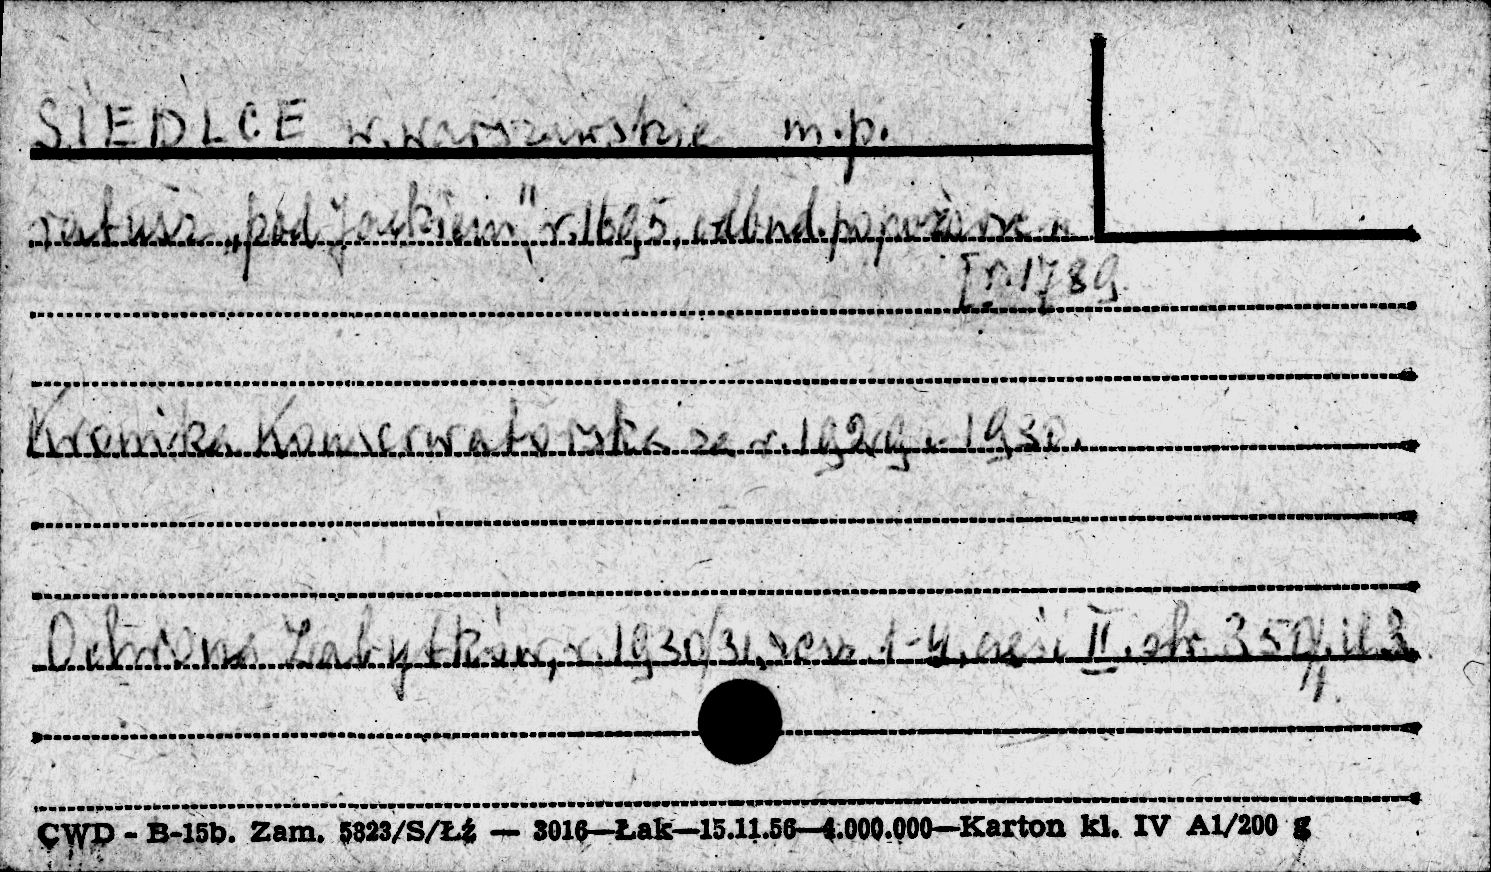 SIEDLCE w. warszawskie m.p.
ratusz „pod Jackiem” r. 1695, odbud. po pożarze w
[r. 1789.
Kronika Konserwatorska za r. 1929 i 1930.
Ochrona Zabytków, r. 1930/31, zesz. 1-4, część II, str. 359, il. 3
CWD - B-15b. Zam. 5823/S/Łź — 3016—Łak—15.11.56—4.000.000—Karton kl. IV A1/200 g